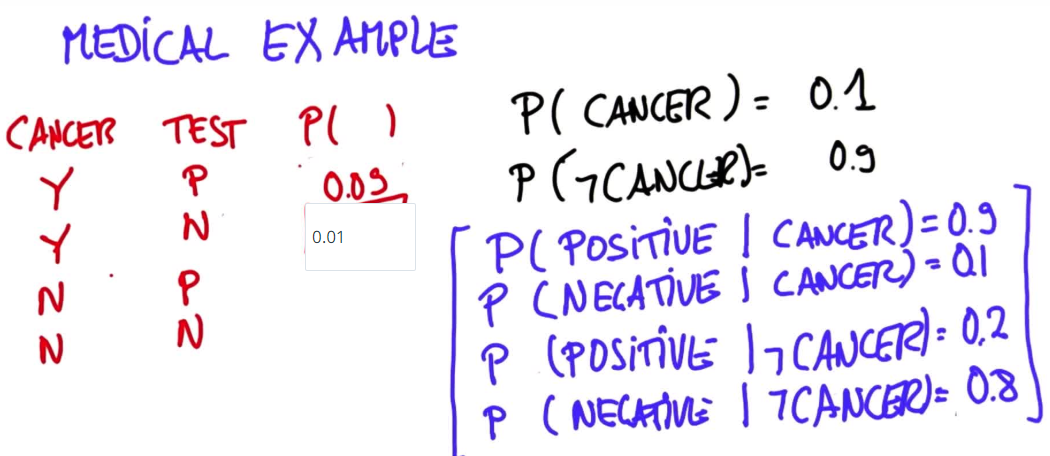 MEDICAL EXAMPLE
CANCER TEST P( )
Y P 0.09
Y N 0.01
N P
N N
P( CANCER ) = 0.1
P (¬CANCER)= 0.9
P( POSITIVE | CANCER)=0.9
P (NEGATIVE | CANCER) = 0.1
P (POSITIVE |¬CANCER)= 0.2
P (NEGATIVE | ¬CANCER)= 0.8